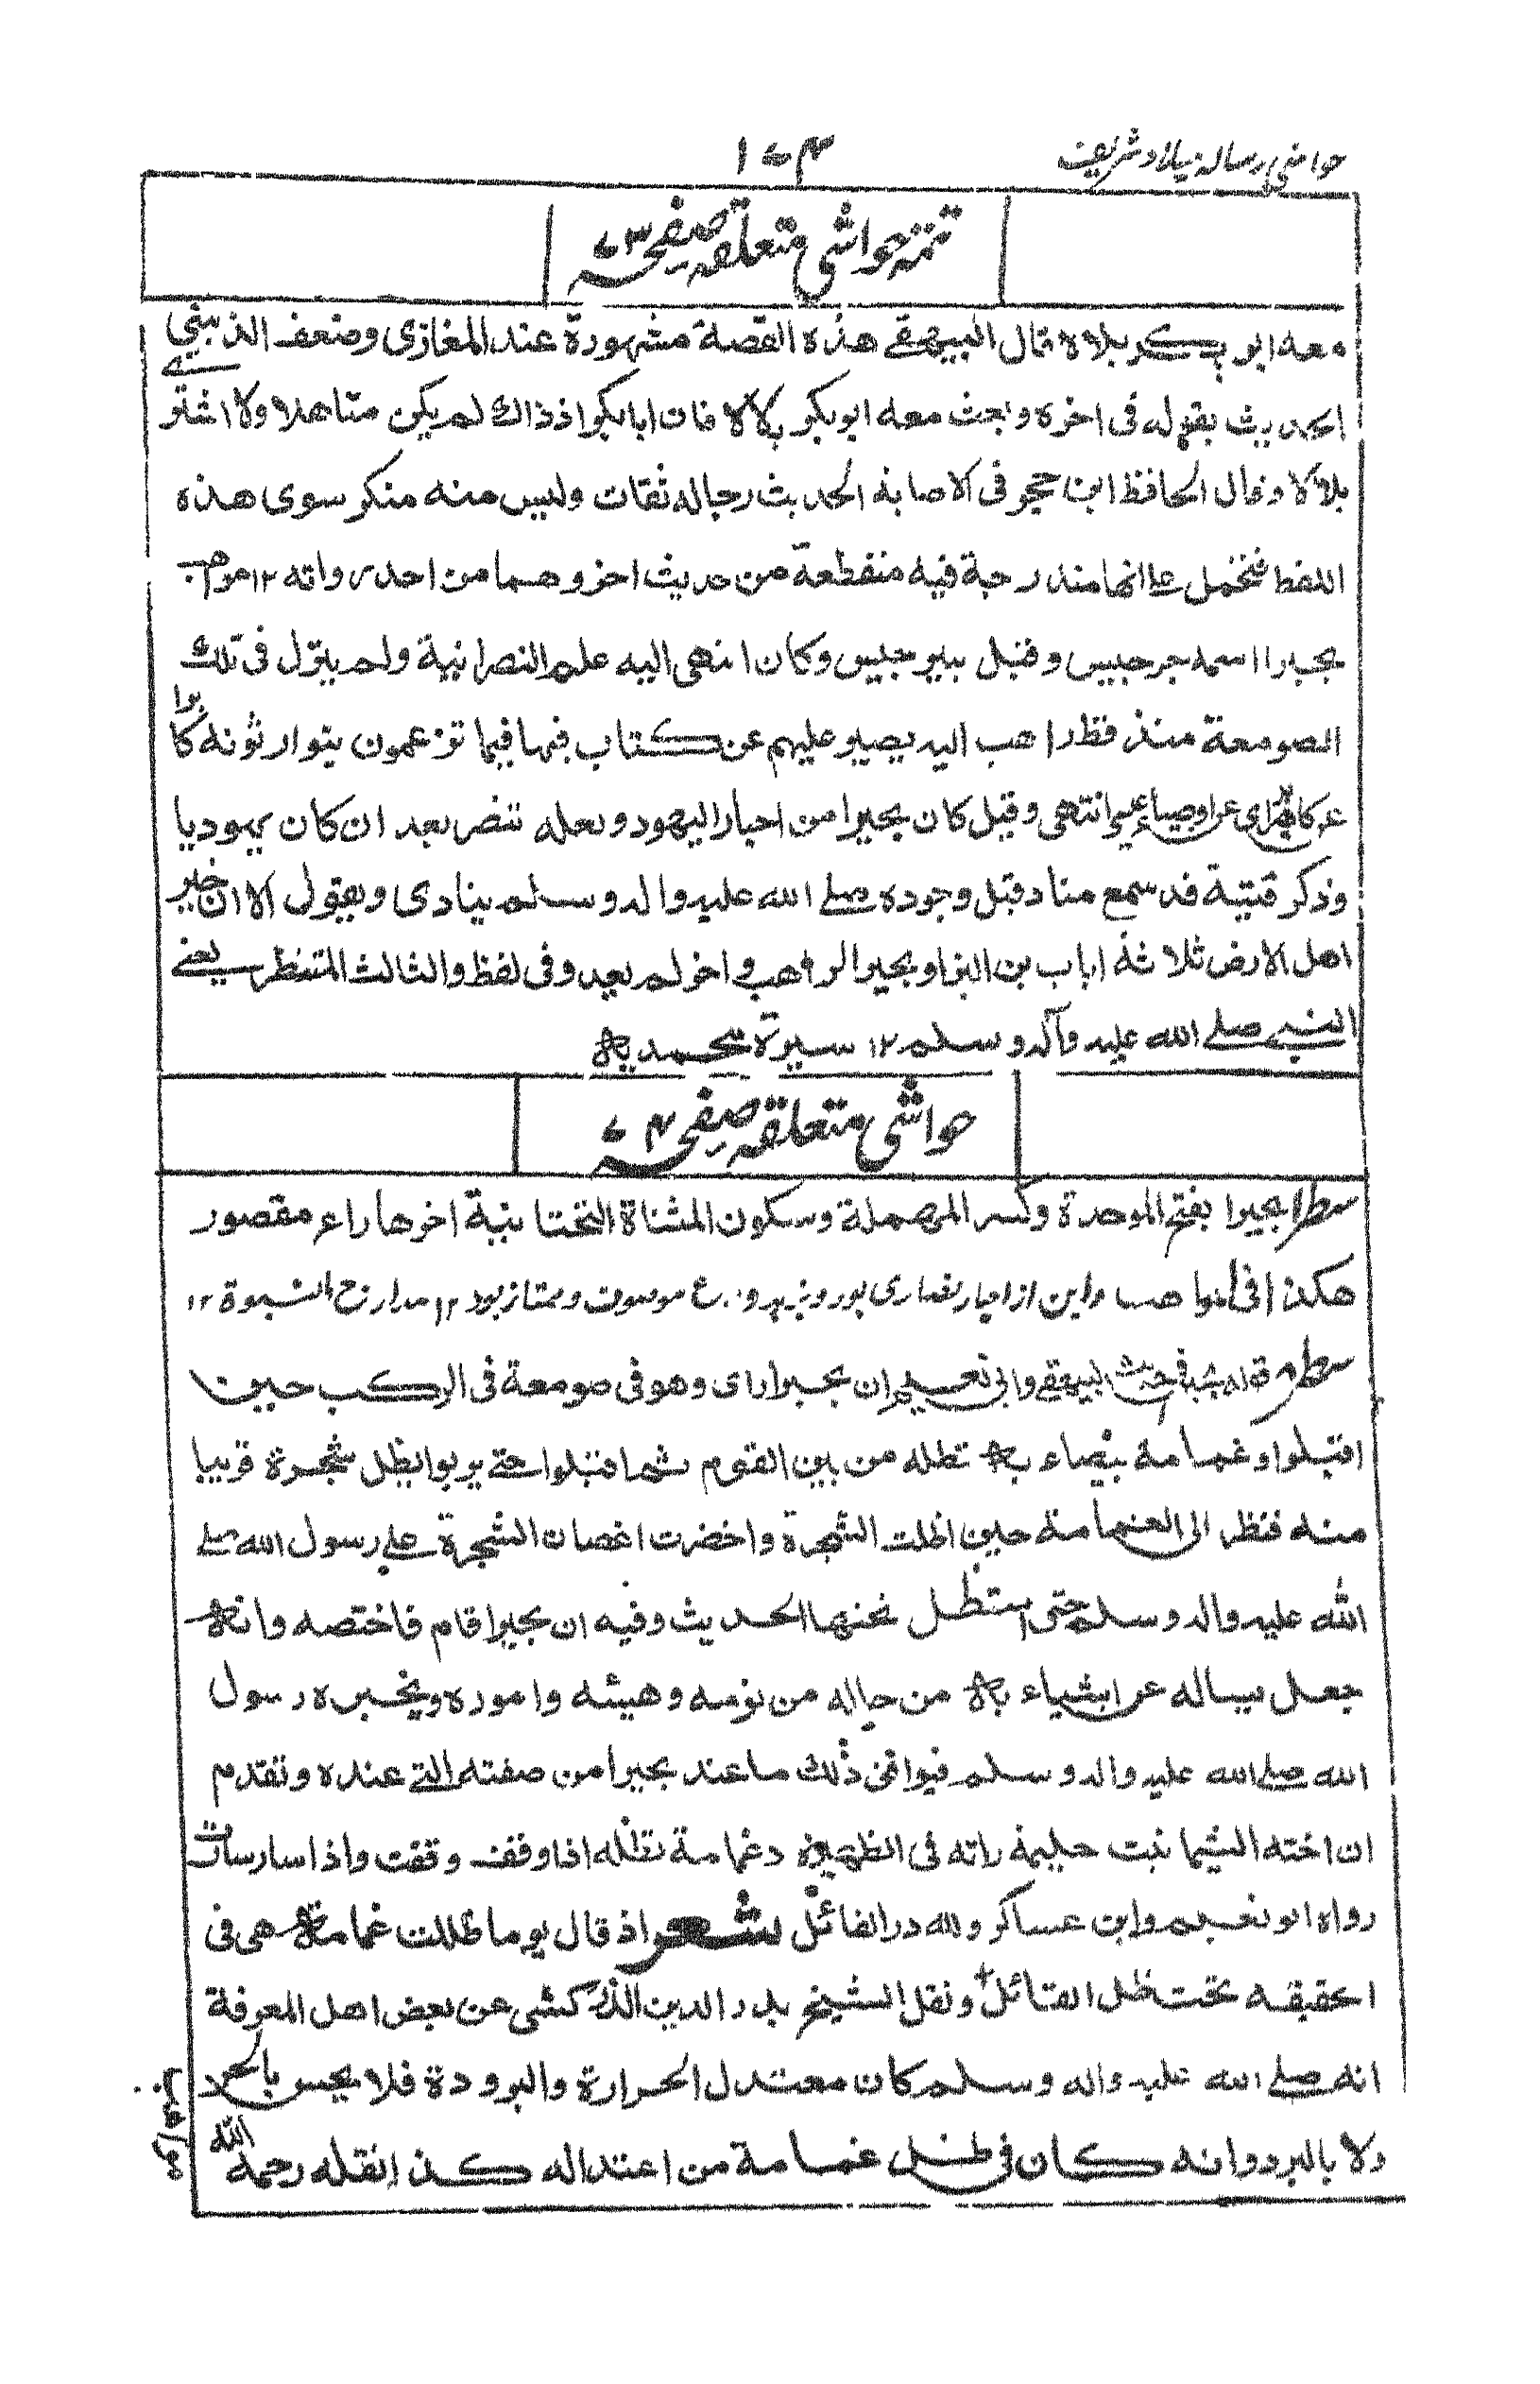 حواشی رسالہ میلاد شریف ۱۷۴
تتمۂ حواشی متعلقہ صفحہ ۷۳
معه ابو بكر بلالا قال البيهقے هذه القصة مشهورة عند المغازى وضعف الذهبي
الحديث بقوله فى اخره وبعث معه ابو بكر بلالا فان ابا بكر اذ ذاك لم يكن متاهلا ولا اشترى
بلالا وقال الحافظ ابن حجر فى الاصابة الحديث رجاله ثقات وليس منه منكر سوى هذه
اللفظ فتحمل علے انها مندرجة فيه منقطعة من حديث اخر وهما من احد رواته ۱۲
بحيرا اسمه جرجيس وقيل سرجيس وكان انتهى اليه علم النصرانية ولم يزل فى تلك
الصومعة منذ قط راهب اليه يصير عليهم عن كتاب فيها فيما تزعمون يتوارثونه كابرا
عن كابر اى عن اوصياء عيسى انتهى وقيل كان بحيرا من احبار اليهود ولعله تنصر بعد ان كان يهوديا
وذكر قتيبة قد سمع مناد قبل وجوده صلے الله عليه واله وسلم ينادى ويقول الا ان خير
اهل الارض ثلاثة اباب بن البزا وبحيرا الراهب واخر لم يعد وفى لفظ والثالث المنتظر يعنے
النبے صلے الله عليه وآله وسلم ۱۲ سيرة محمديه
حواشی متعلقہ صفحہ ۷۴
سطر۱ بحيرا بفتح الموحدة وكسر المهملة وسكون المثناة التحتانية اخرها راء مقصور
هكذا فى المواهب واین از احبار نصاری بود و بزہد و ورع موصوف و ممتاز بود ۱۲ مدارج النبوة ۱۲
سطر۳ قوله شجرة فى حديث البيهقے وابى نعيم ان بحيرا راى وهو فى صومعة فى الركب حين
اقبلوا وغمامة بيضاء تظله من بين القوم ثم اقبلوا حتے نزلوا بظل شجرة قريبا
منه فنظر الى الغمامة حين اظلت الشجرة واخضرت اغصان الشجرة علے رسول الله صلے
الله عليه واله وسلم حتى استظل تحتها الحديث وفيه ان بحيرا قام فاختصه وانه
جعل يساله عن اشياء من حاله من نومه وهيئه واموره ويخبره رسول
الله صلے الله عليه واله وسلم فيوافق ذلك ما عند بحيرا من صفته التے عنده وتقدم
ان اخته الشيما بنت حليمة راته فى الظهيرة دغمامة تظله اذا وقف وقفت واذا سار سارت
رواه ابو نعيم وابن عساكر ولله در القائل شعر اذ قال يوما ظللت غمامة هى فى
الحقيقه تحت ظل القائل ونقل الشيخ بدر الدين الزركشى عن بعض اهل المعرفة
انه صلے الله عليه واله وسلم كان معتدل الحرارة والبرودة فلا يحس بالحر
ولا بالبرد وانه كان فى ظل غمامة من اعتداله كذا نقله رحمة الله